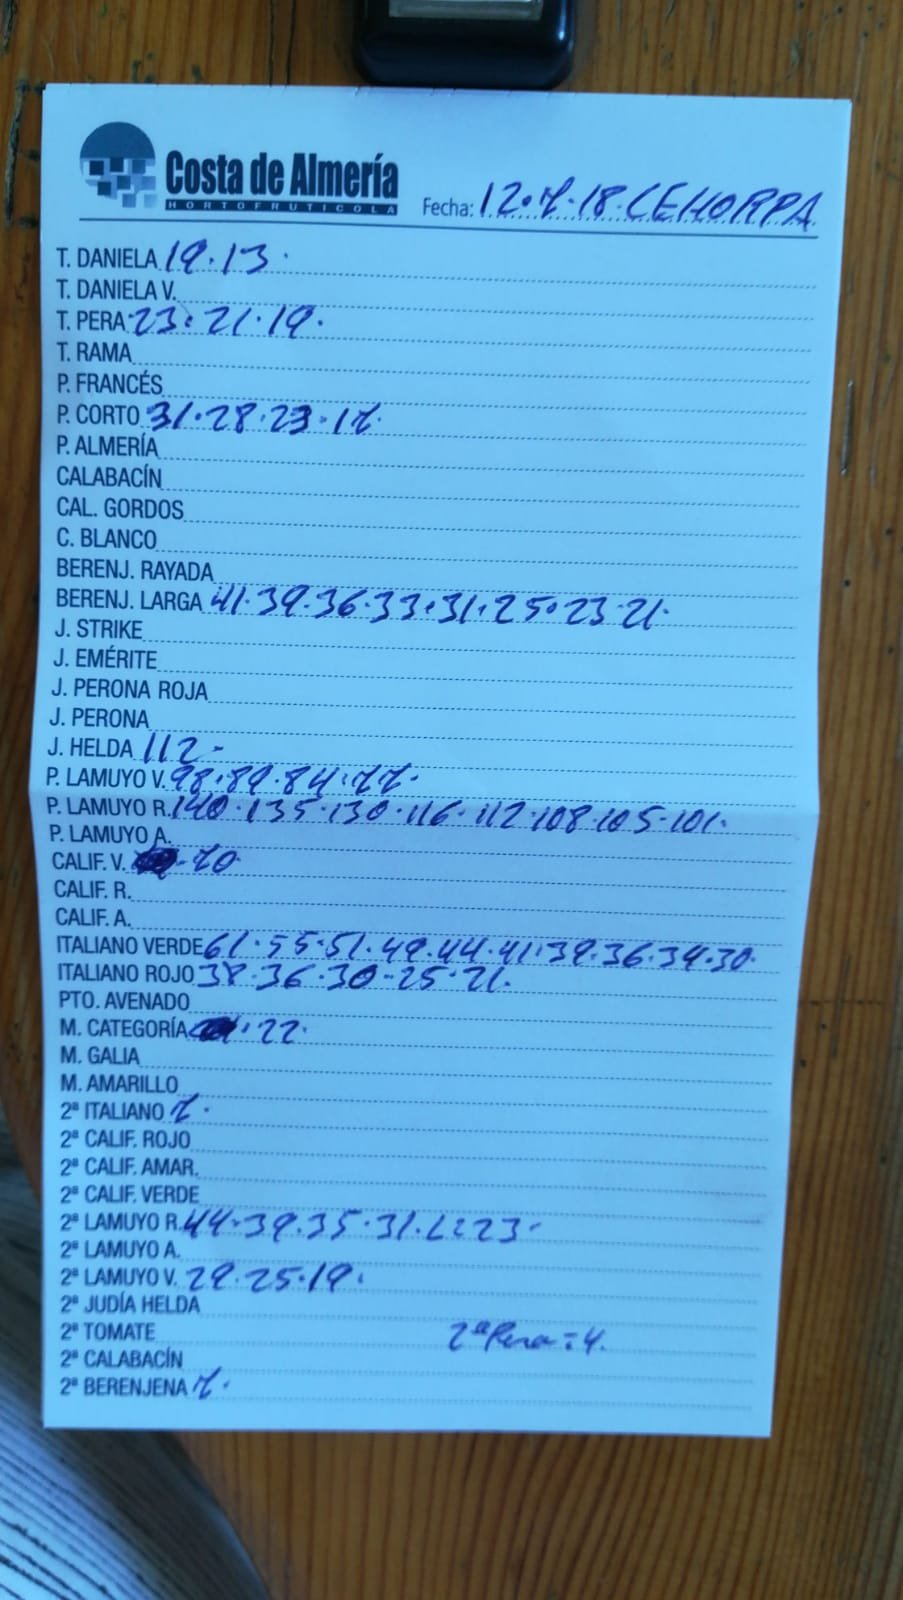 Costa de Almería
HORTOFRUTICOLA
Fecha: 12.7.18 CEHORPA
T. DANIELA 19.13.
T. DANIELA V.
T. PERA 23.21.19.
T. RAMA
P. FRANCÉS
P. CORTO 31.28.23.17.
P. ALMERÍA
CALABACÍN
CAL. GORDOS
C. BLANCO
BERENJ. RAYADA
BERENJ. LARGA 41.39.36.33.31.25.23.21.
J. STRIKE
J. EMÉRITE
J. PERONA ROJA
J. PERONA
J. HELDA 112-
P. LAMUYO V. 98.89.84.77.
P. LAMUYO R. 140.135.130.116.112.108.105.101.
P. LAMUYO A.
CALIF. V. -70
CALIF. R.
CALIF. A.
ITALIANO VERDE 61.55.51.49.44.41.39.36.34.30.
ITALIANO ROJO 38.36.30-25.21.
PTO. AVENADO
M. CATEGORÍA .22.
M. GALIA
M. AMARILLO
2ª ITALIANO 7.
2ª CALIF. ROJO
2ª CALIF. AMAR.
2ª CALIF. VERDE
2ª LAMUYO R. 44-39.35.31. 23-
2ª LAMUYO A.
2ª LAMUYO V. 29.25.19.
2ª JUDÍA HELDA
2ª TOMATE 2ª Pera = 4.
2ª CALABACÍN
2ª BERENJENA 7.